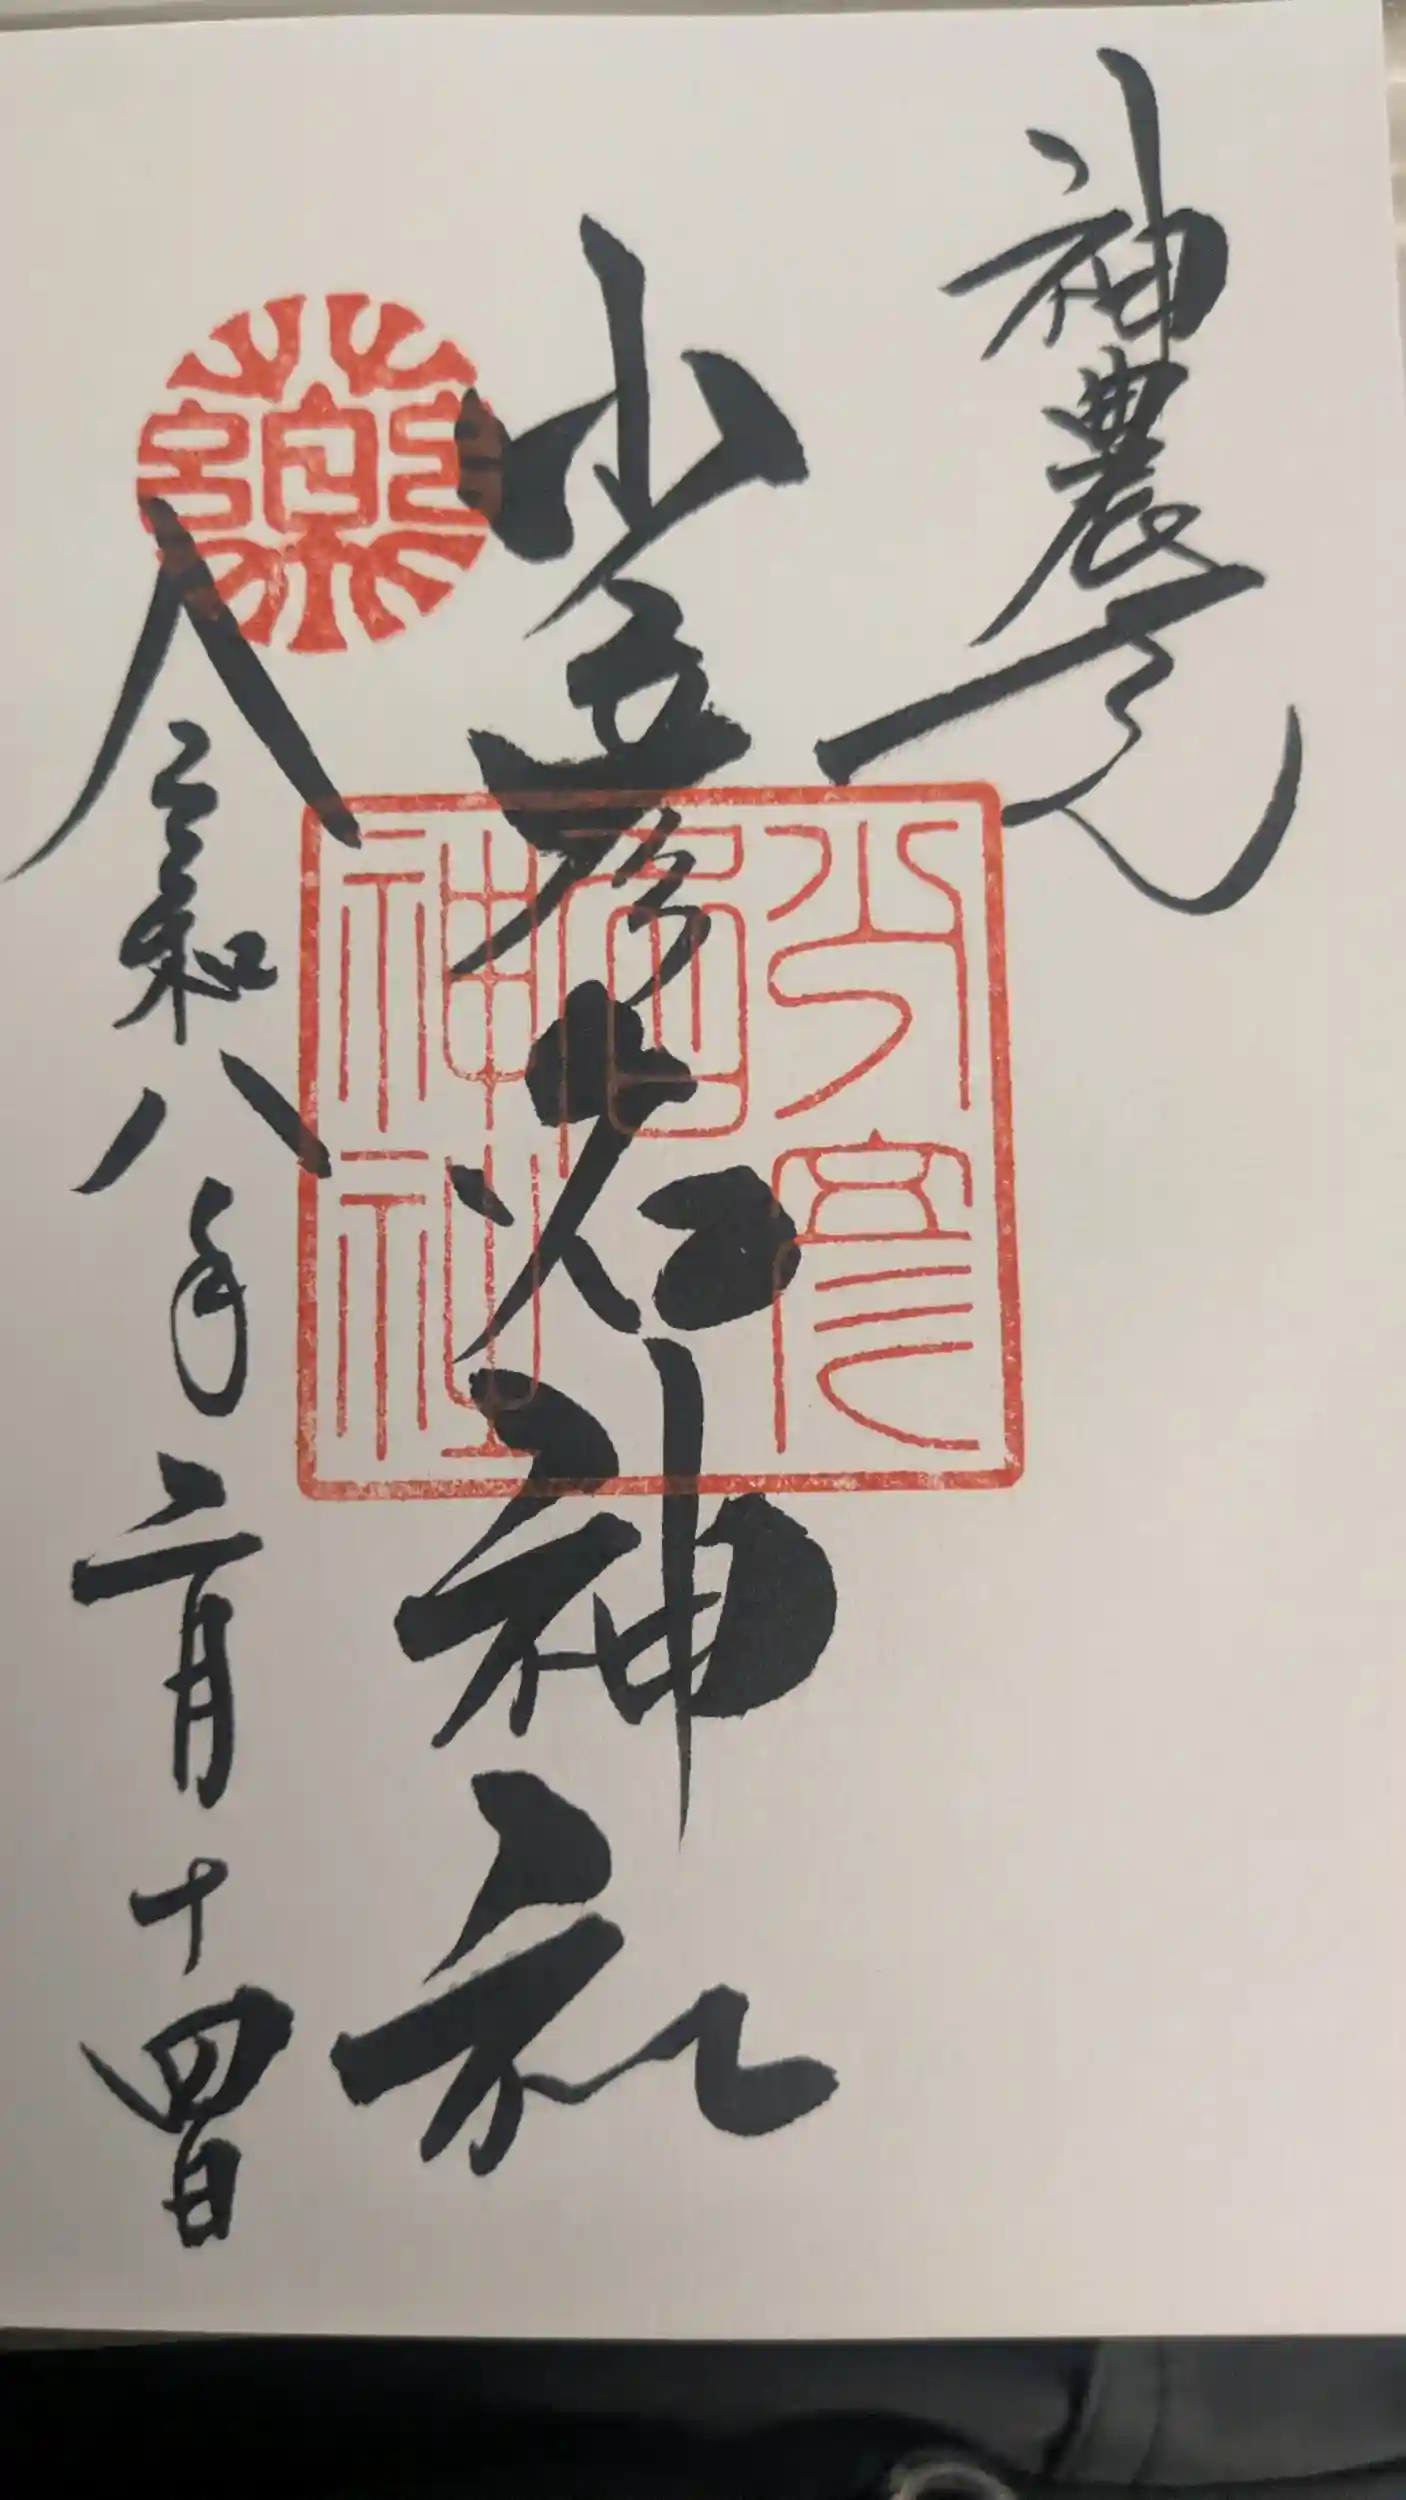 神農
少彦名神社
令和八年二月十四日
薬
少彦
名
神社